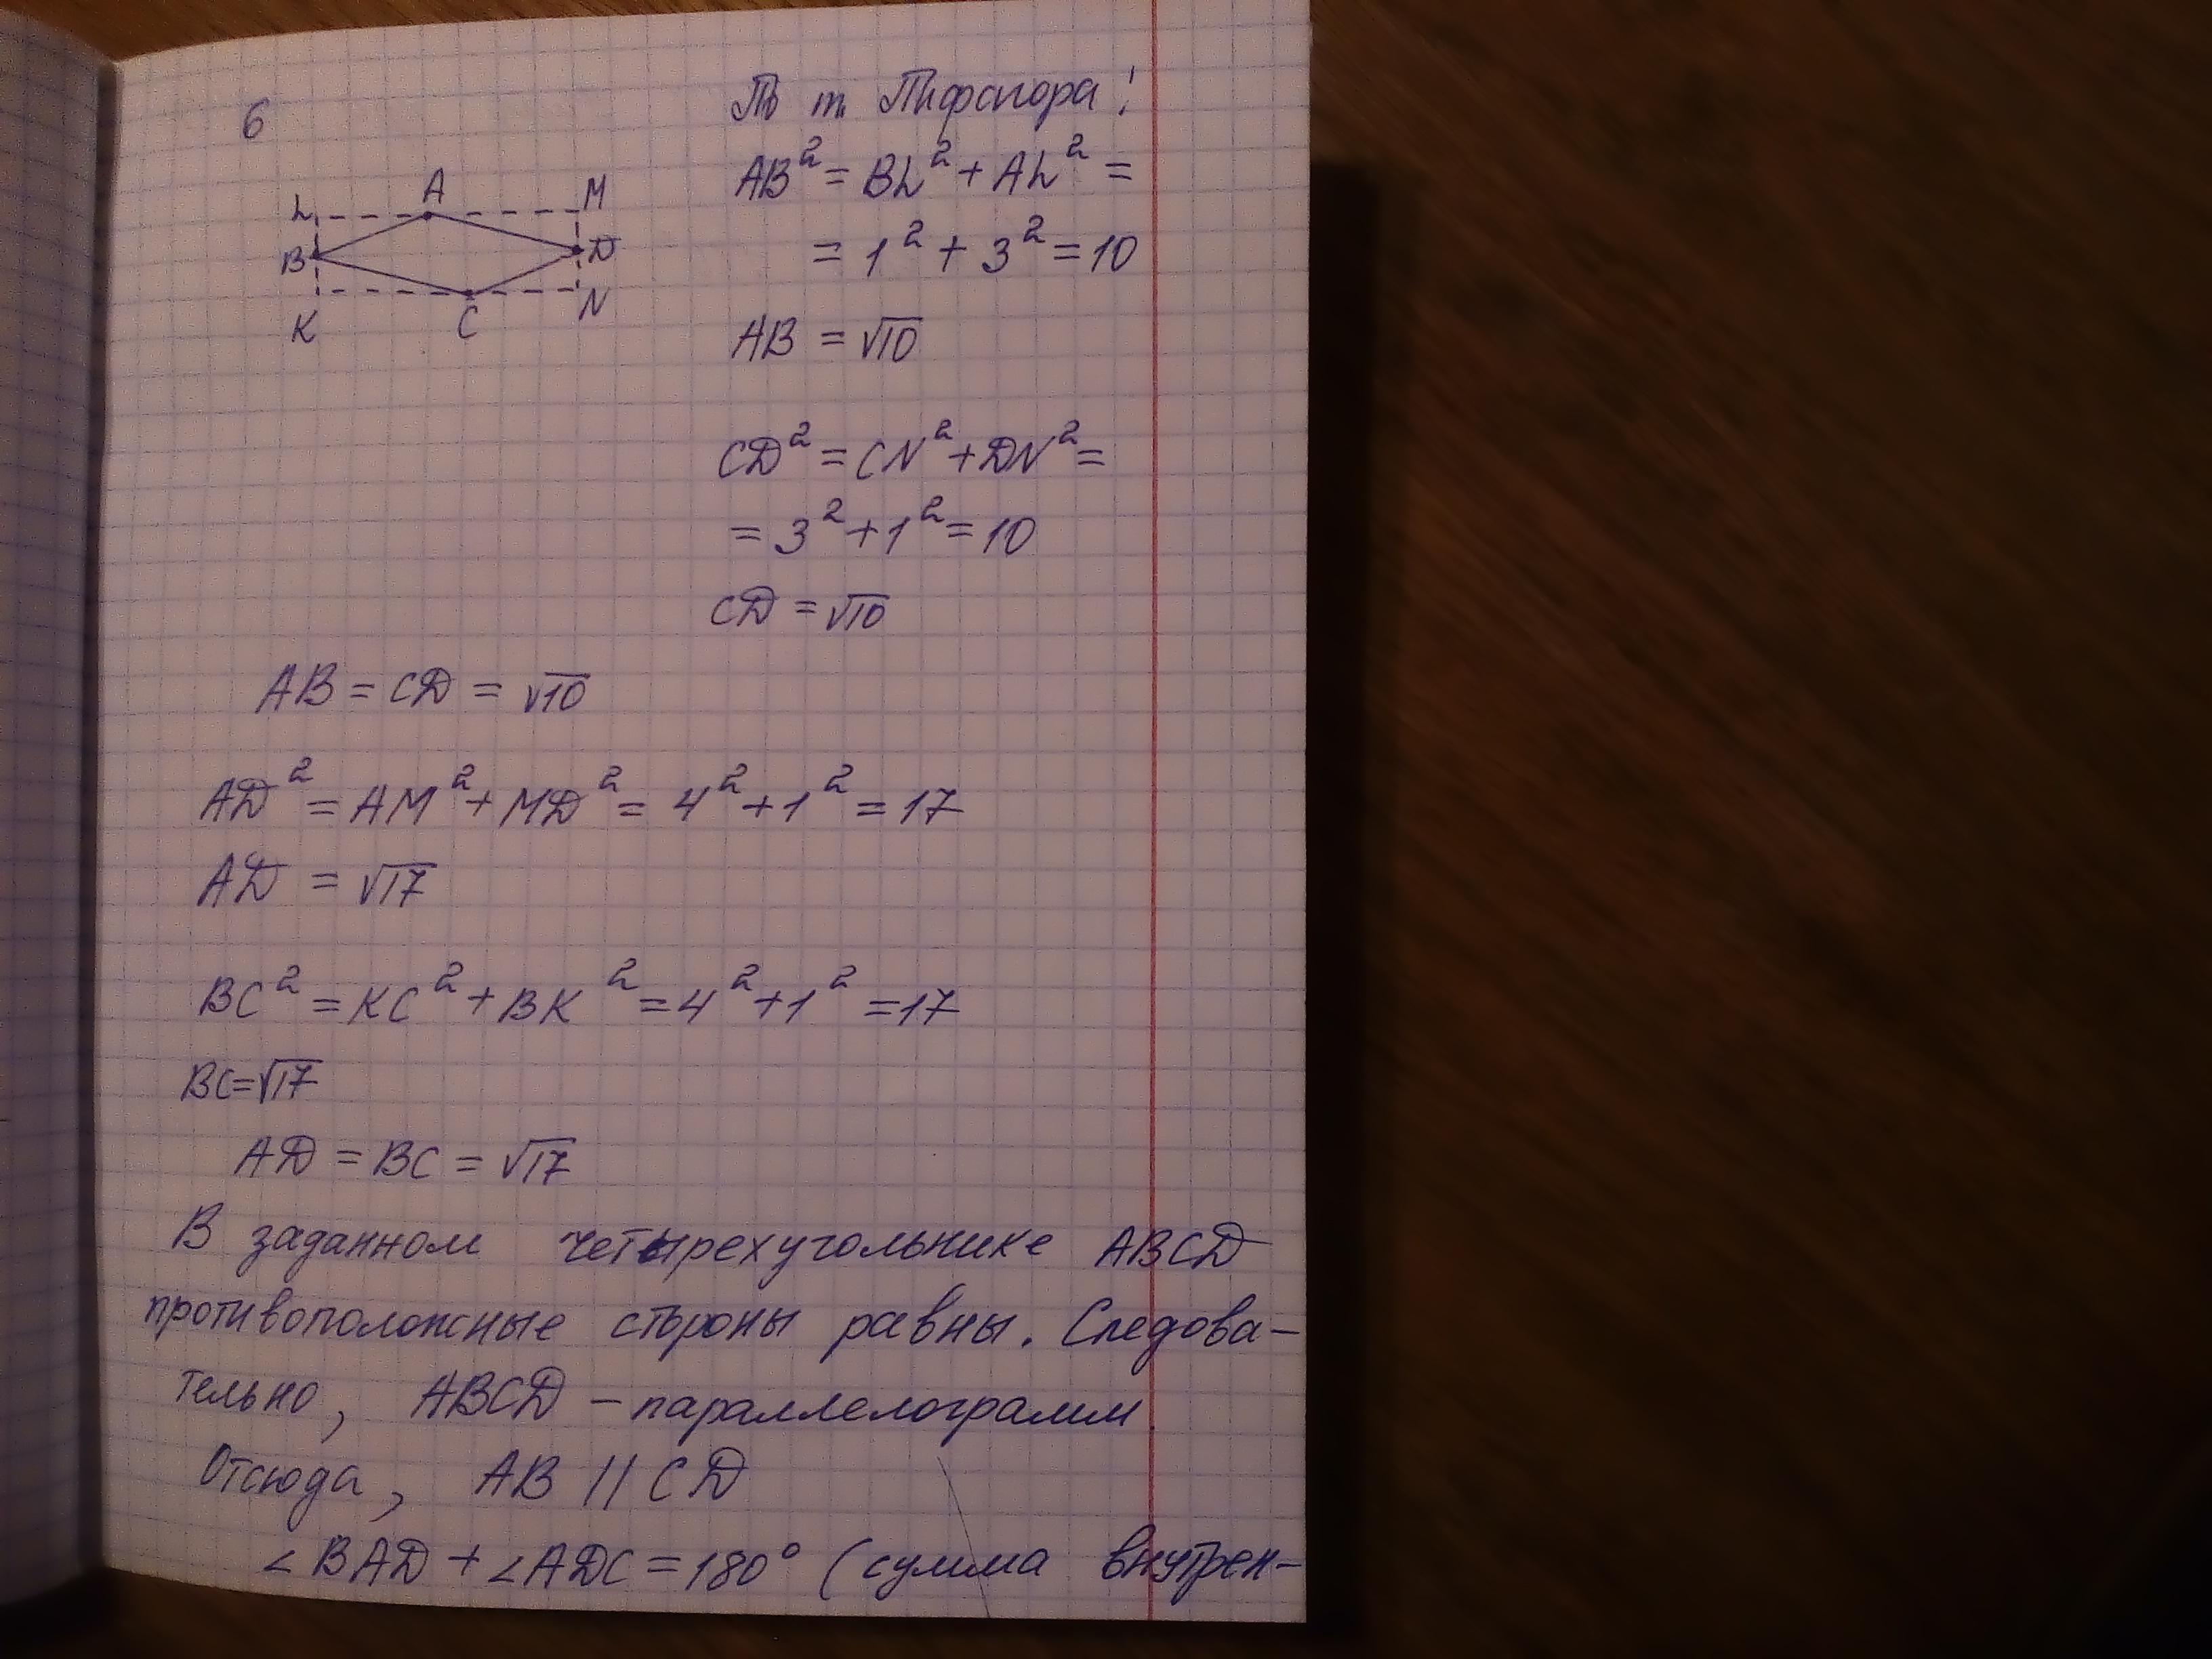 6
По т. Пифагора:
L A M
B D
K C N
AB² = BL² + AL² =
= 1² + 3² = 10
AB = √10
CD² = CN² + DN² =
= 3² + 1² = 10
CD = √10
AB = CD = √10
AD² = AM² + MD² = 4² + 1² = 17
AD = √17
BC² = KC² + BK² = 4² + 1² = 17
BC = √17
AD = BC = √17
В заданном четырехугольнике ABCD
противоположные стороны равны. Следова-
тельно, ABCD – параллелограмм.
Отсюда, AB || CD
∠BAD + ∠ADC = 180° (сумма внутрен-